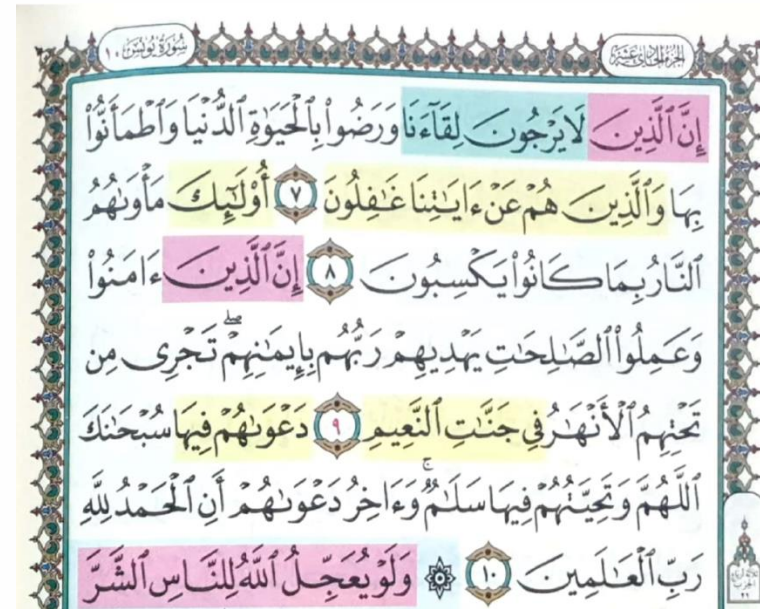 سُورَةُ يُونُسَ ١٠
الجزء الحادي عشر
إِنَّ ٱلَّذِينَ لَا يَرۡجُونَ لِقَآءَنَا وَرَضُواْ بِٱلۡحَيَوٰةِ ٱلدُّنۡيَا وَٱطۡمَأَنُّواْ
بِهَا وَٱلَّذِينَ هُمۡ عَنۡ ءَايَٰتِنَا غَٰفِلُونَ ٧ أُوْلَٰٓئِكَ مَأۡوَىٰهُمُ
ٱلنَّارُ بِمَا كَانُواْ يَكۡسِبُونَ ٨ إِنَّ ٱلَّذِينَ ءَامَنُواْ
وَعَمِلُواْ ٱلصَّٰلِحَٰتِ يَهۡدِيهِمۡ رَبُّهُم بِإِيمَٰنِهِمۡۖ تَجۡرِي مِن
تَحۡتِهِمُ ٱلۡأَنۡهَٰرُ فِي جَنَّٰتِ ٱلنَّعِيمِ ٩ دَعۡوَىٰهُمۡ فِيهَا سُبۡحَٰنَكَ
ٱللَّهُمَّ وَتَحِيَّتُهُمۡ فِيهَا سَلَٰمٞۚ وَءَاخِرُ دَعۡوَىٰهُمۡ أَنِ ٱلۡحَمۡدُ لِلَّهِ
رَبِّ ٱلۡعَٰلَمِينَ ١٠ ۞ وَلَوۡ يُعَجِّلُ ٱللَّهُ لِلنَّاسِ ٱلشَّرَّ